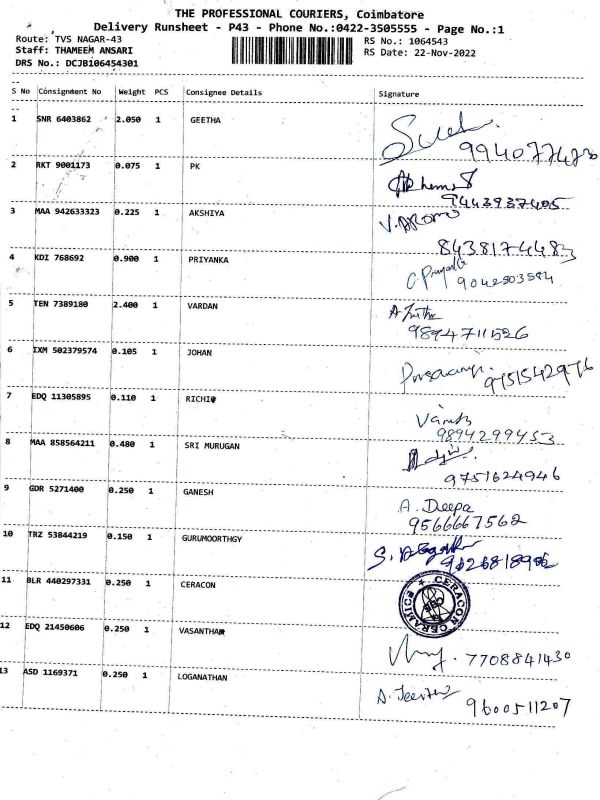 THE PROFESSIONAL COURIERS, Coimbatore
Delivery Runsheet - P43 - Phone No.:0422-3505555 - Page No.:1
Route: TVS NAGAR-43 RS No.: 1064543
Staff: THAMEEM ANSARI RS Date: 22-Nov-2022
DRS No.: DCJB106454301
S No Consignment No Weight PCS Consignee Details Signature
1 SNR 6403862 2.050 1 GEETHA
2 RKT 9001173 0.075 1 PK
9443937405
3 MAA 942633323 0.225 1 AKSHIYA
8438174483
4 KDI 768692 0.900 1 PRIYANKA
5 TEN 7389180 2.400 1 VARDAN
9894711526
6 IXM 502379574 0.105 1 JOHAN
9751542976
7 EDQ 11305895 0.110 1 RICHI
9894299453
8 MAA 858564211 0.480 1 SRI MURUGAN
9751624946
9 GDR 5271400 0.250 1 GANESH
A. Deepa
9566667562
10 TRZ 53844219 0.150 1 GURUMOORTHGY
11 BLR 440297331 0.250 1 CERACON
CERACON CERAMICS
CBE
12 EDQ 21450606 0.250 1 VASANTHA
7708841430
13 ASD 1169371 0.250 1 LOGANATHAN
9600511207